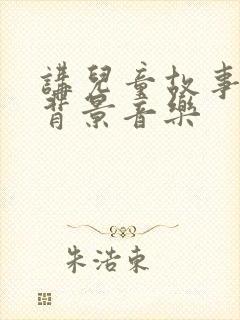 講兒童故事
背景音樂
朱浩東